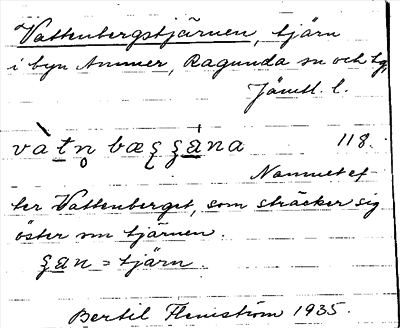 Vattenbergstjärnen, tjärn
i byn Ammer, Ragunda sn och tg,
Jämtl. l.
và t n̥ bæʃ ʃa̍na 118.
Namnet ef-
ter Vattenberget, som sträcker sig
öster om tjärnen.
ʃan = tjärn
Bertil Flemström 1935.